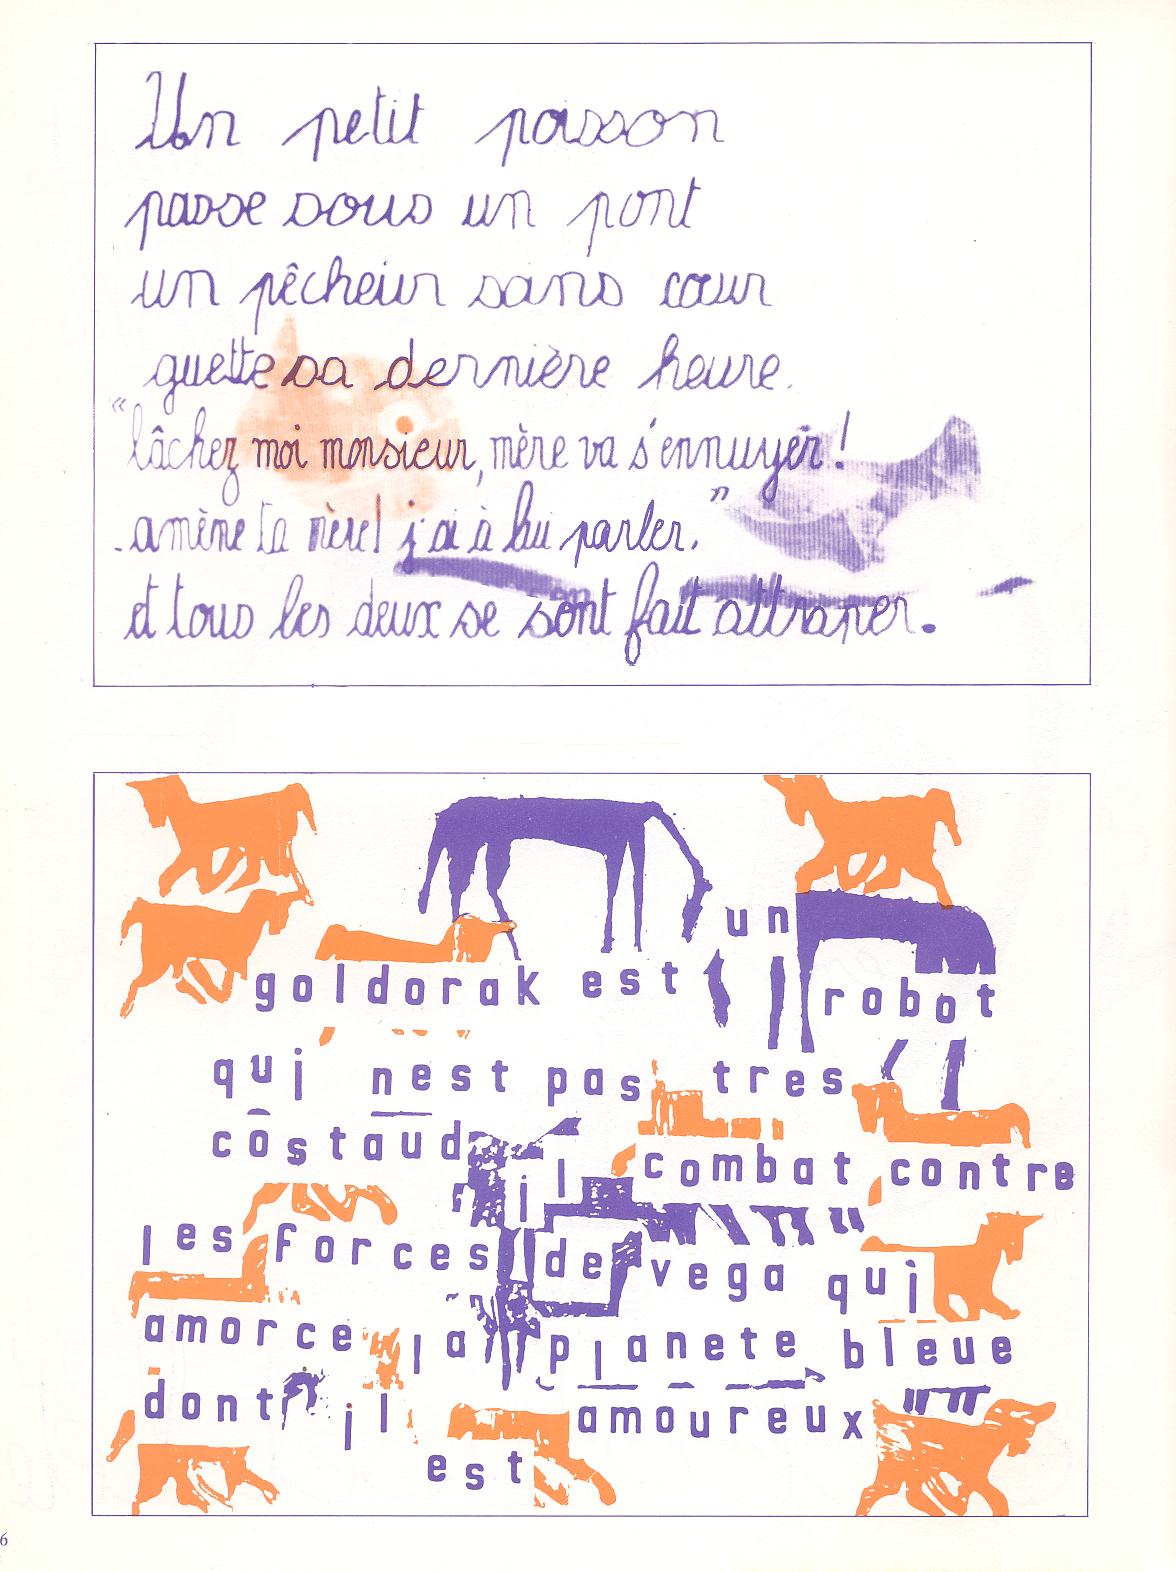 Un petit poisson
passe sous un pont
un pêcheur sans cœur
guette sa dernière heure.
"lâchez moi monsieur, mère va s'ennuyer!
-amène ta mère! j'ai à lui parler."
et tous les deux se sont fait attraper.
goldorak est un robot
qui nest pas tres
costaud il combat contre
les forces de vega qui
amorce la planete bleue
dont il amoureux
est
6